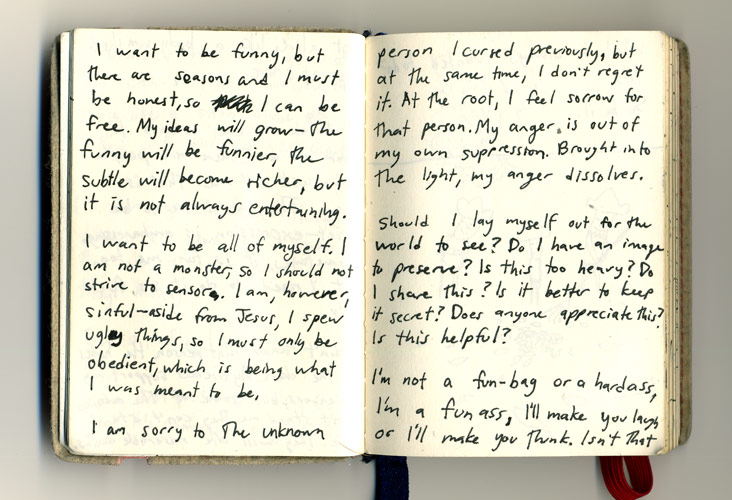 I want to be funny, but
there are seasons and I must
be honest, so I can be
free. My ideas will grow - the
funny will be funnier, the
subtle will become richer, but
it is not always entertaining.
I want to be all of myself. I
am not a monster, so I should not
strive to sensor. I am, however,
sinful - aside from Jesus, I spew
ugly things, so I must only be
obedient, which is being what
I was meant to be.
I am sorry to the unknown
person I cursed previously, but
at the same time, I don't regret
it. At the root, I feel sorrow for
that person. My anger is out of
my own supression. Brought into
the light, my anger dissolves.
Should I lay myself out for the
world to see? Do I have an image
to preserve? Is this too heavy? Do
I share this? Is it better to keep
it secret? Does anyone appreciate this?
Is this helpful?
I'm not a fun-bag or a hardass,
I'm a fun ass, I'll make you laugh
or I'll make you think. Isn't that